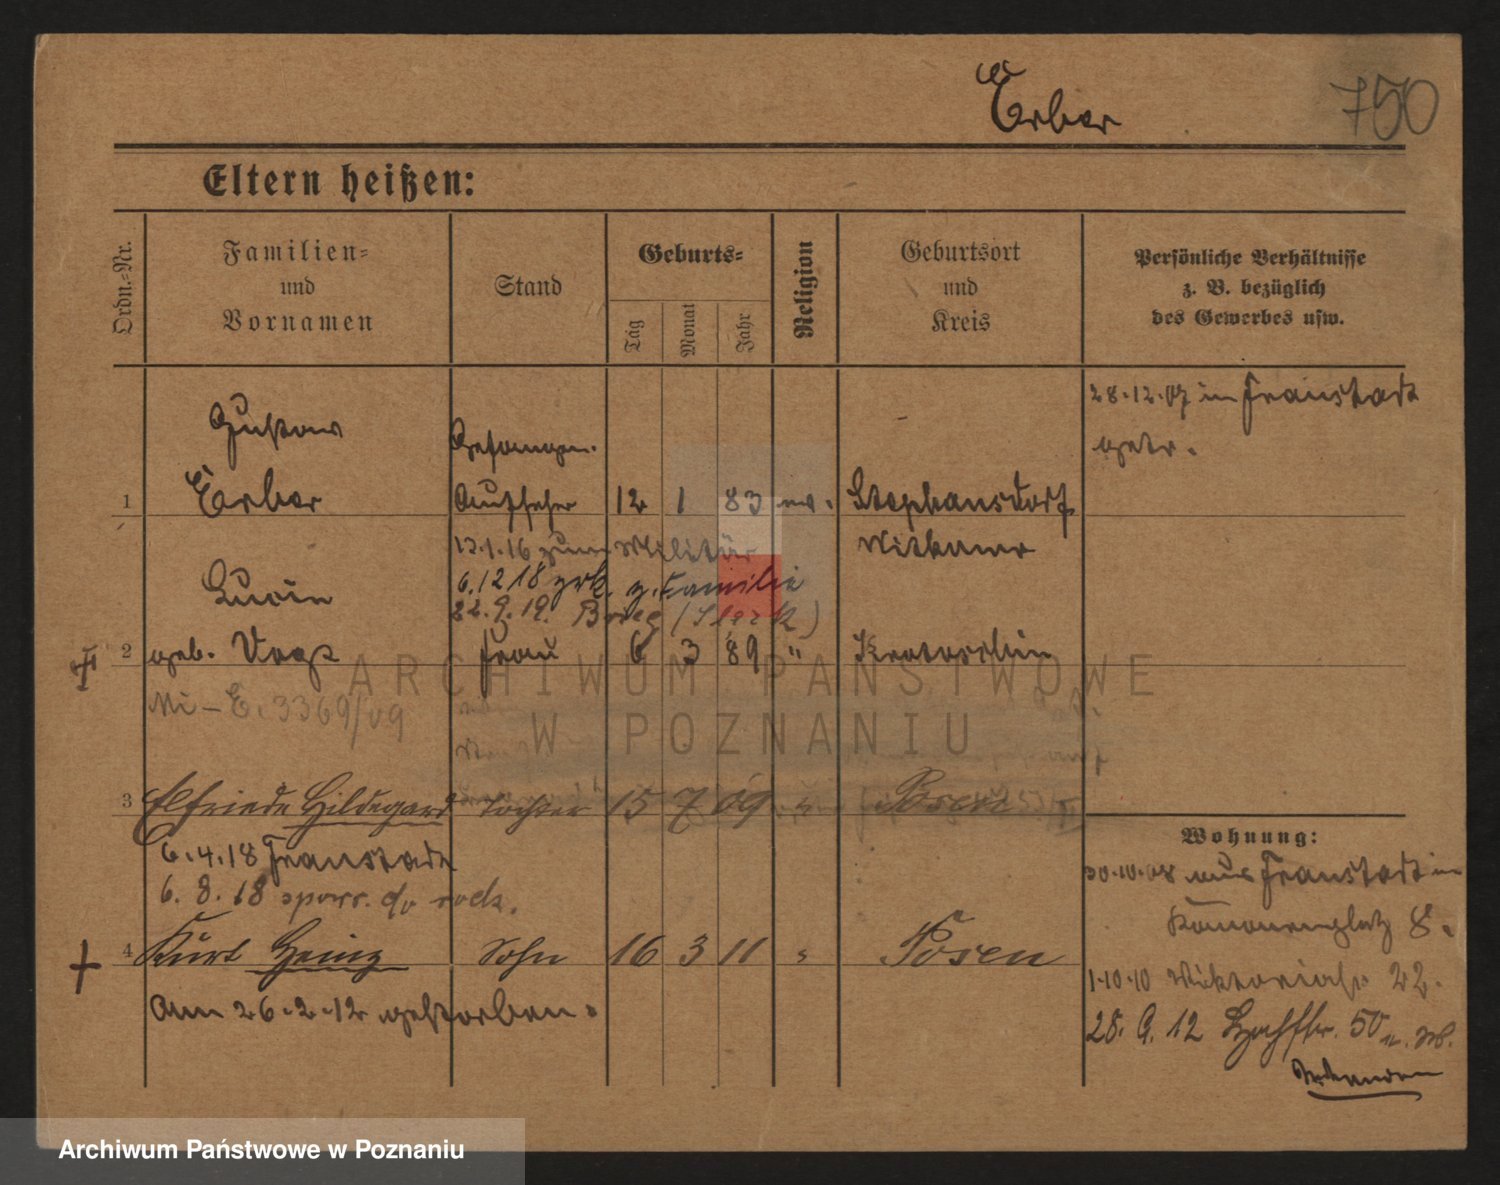 Erber
750
Eltern heißen:
Ordn.-Nr.
Familien-
und
Vornamen
Stand
Geburts-
Tag
Monat
Jahr
Religion
Geburtsort
und
Kreis
Persönliche Verhältnisse
z. B. bezüglich
des Gewerbes usw.
28.12.07 in Fraustadt
getr.
Gustav
Gefangen.
1 Erber Aufseher 12 1 83 ev. Stephansdorf
13.1.16 zum Militär
6.12 18 zrk. z. Familie
22.9.19. Brieg
Lucie
2 geb. Vogt Frau 6 3 89 " Krotoschin
E. 3369/09
3 Elfriede Hildegard Tochter 15 7 09 " Posen
6.4.18 Fraustadt
6. 8. 18 zck.
4 Kurt Heinz Sohn 16 3 11 " Posen
Am 26.2.12 gestorben.
Wohnung:
30.10.08 aus Fraustadt in
Kanonenplatz 8.
1.10.10 Viktoriastr. 22.
28. 9. 12 50
ARCHIWUM PAŃSTWOWE
W POZNANIU
Archiwum Państwowe w Poznaniu